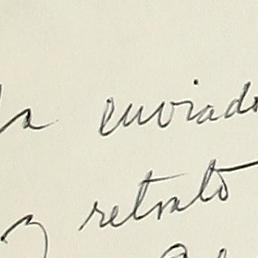 enviado
y retrato